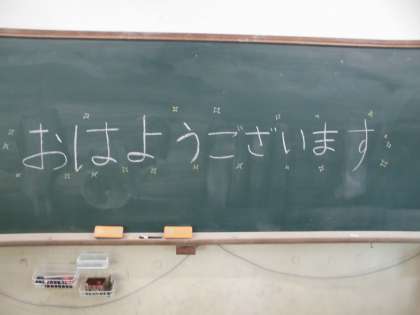 おはようございます